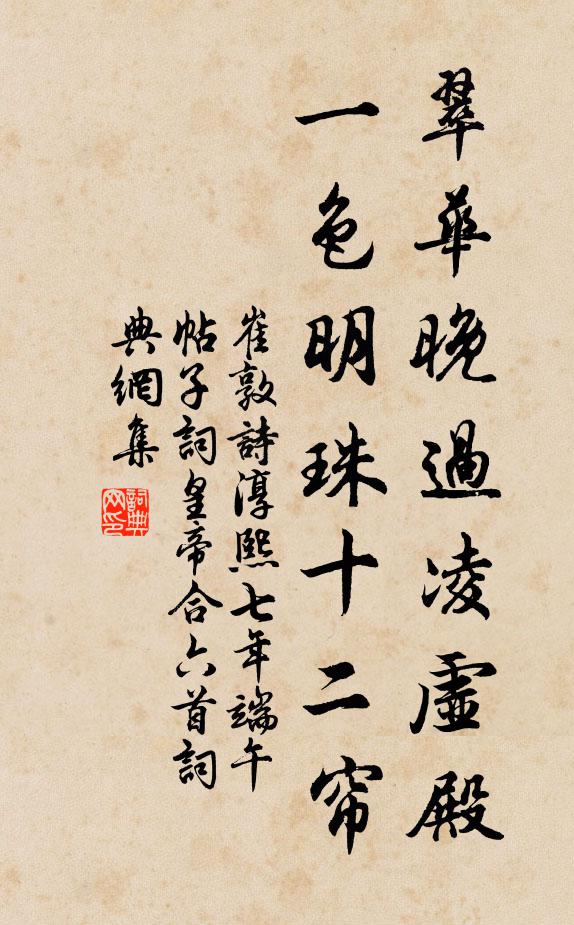 翠華晚過凌虛殿
一色明珠十二帘
崔敦詩淳熙七年端午
帖子詞皇帝合六首詞
典網集
詞典网印